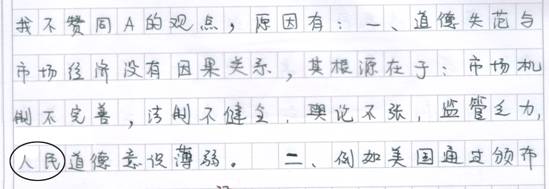 我不赞同A的观点，原因有：一、道德失范与
市场经济没有因果关系，其根源在于：市场机
制不完善，法制不健全，舆论不张，监管乏力，
人民道德意识薄弱。 二、例如美国通过颁布